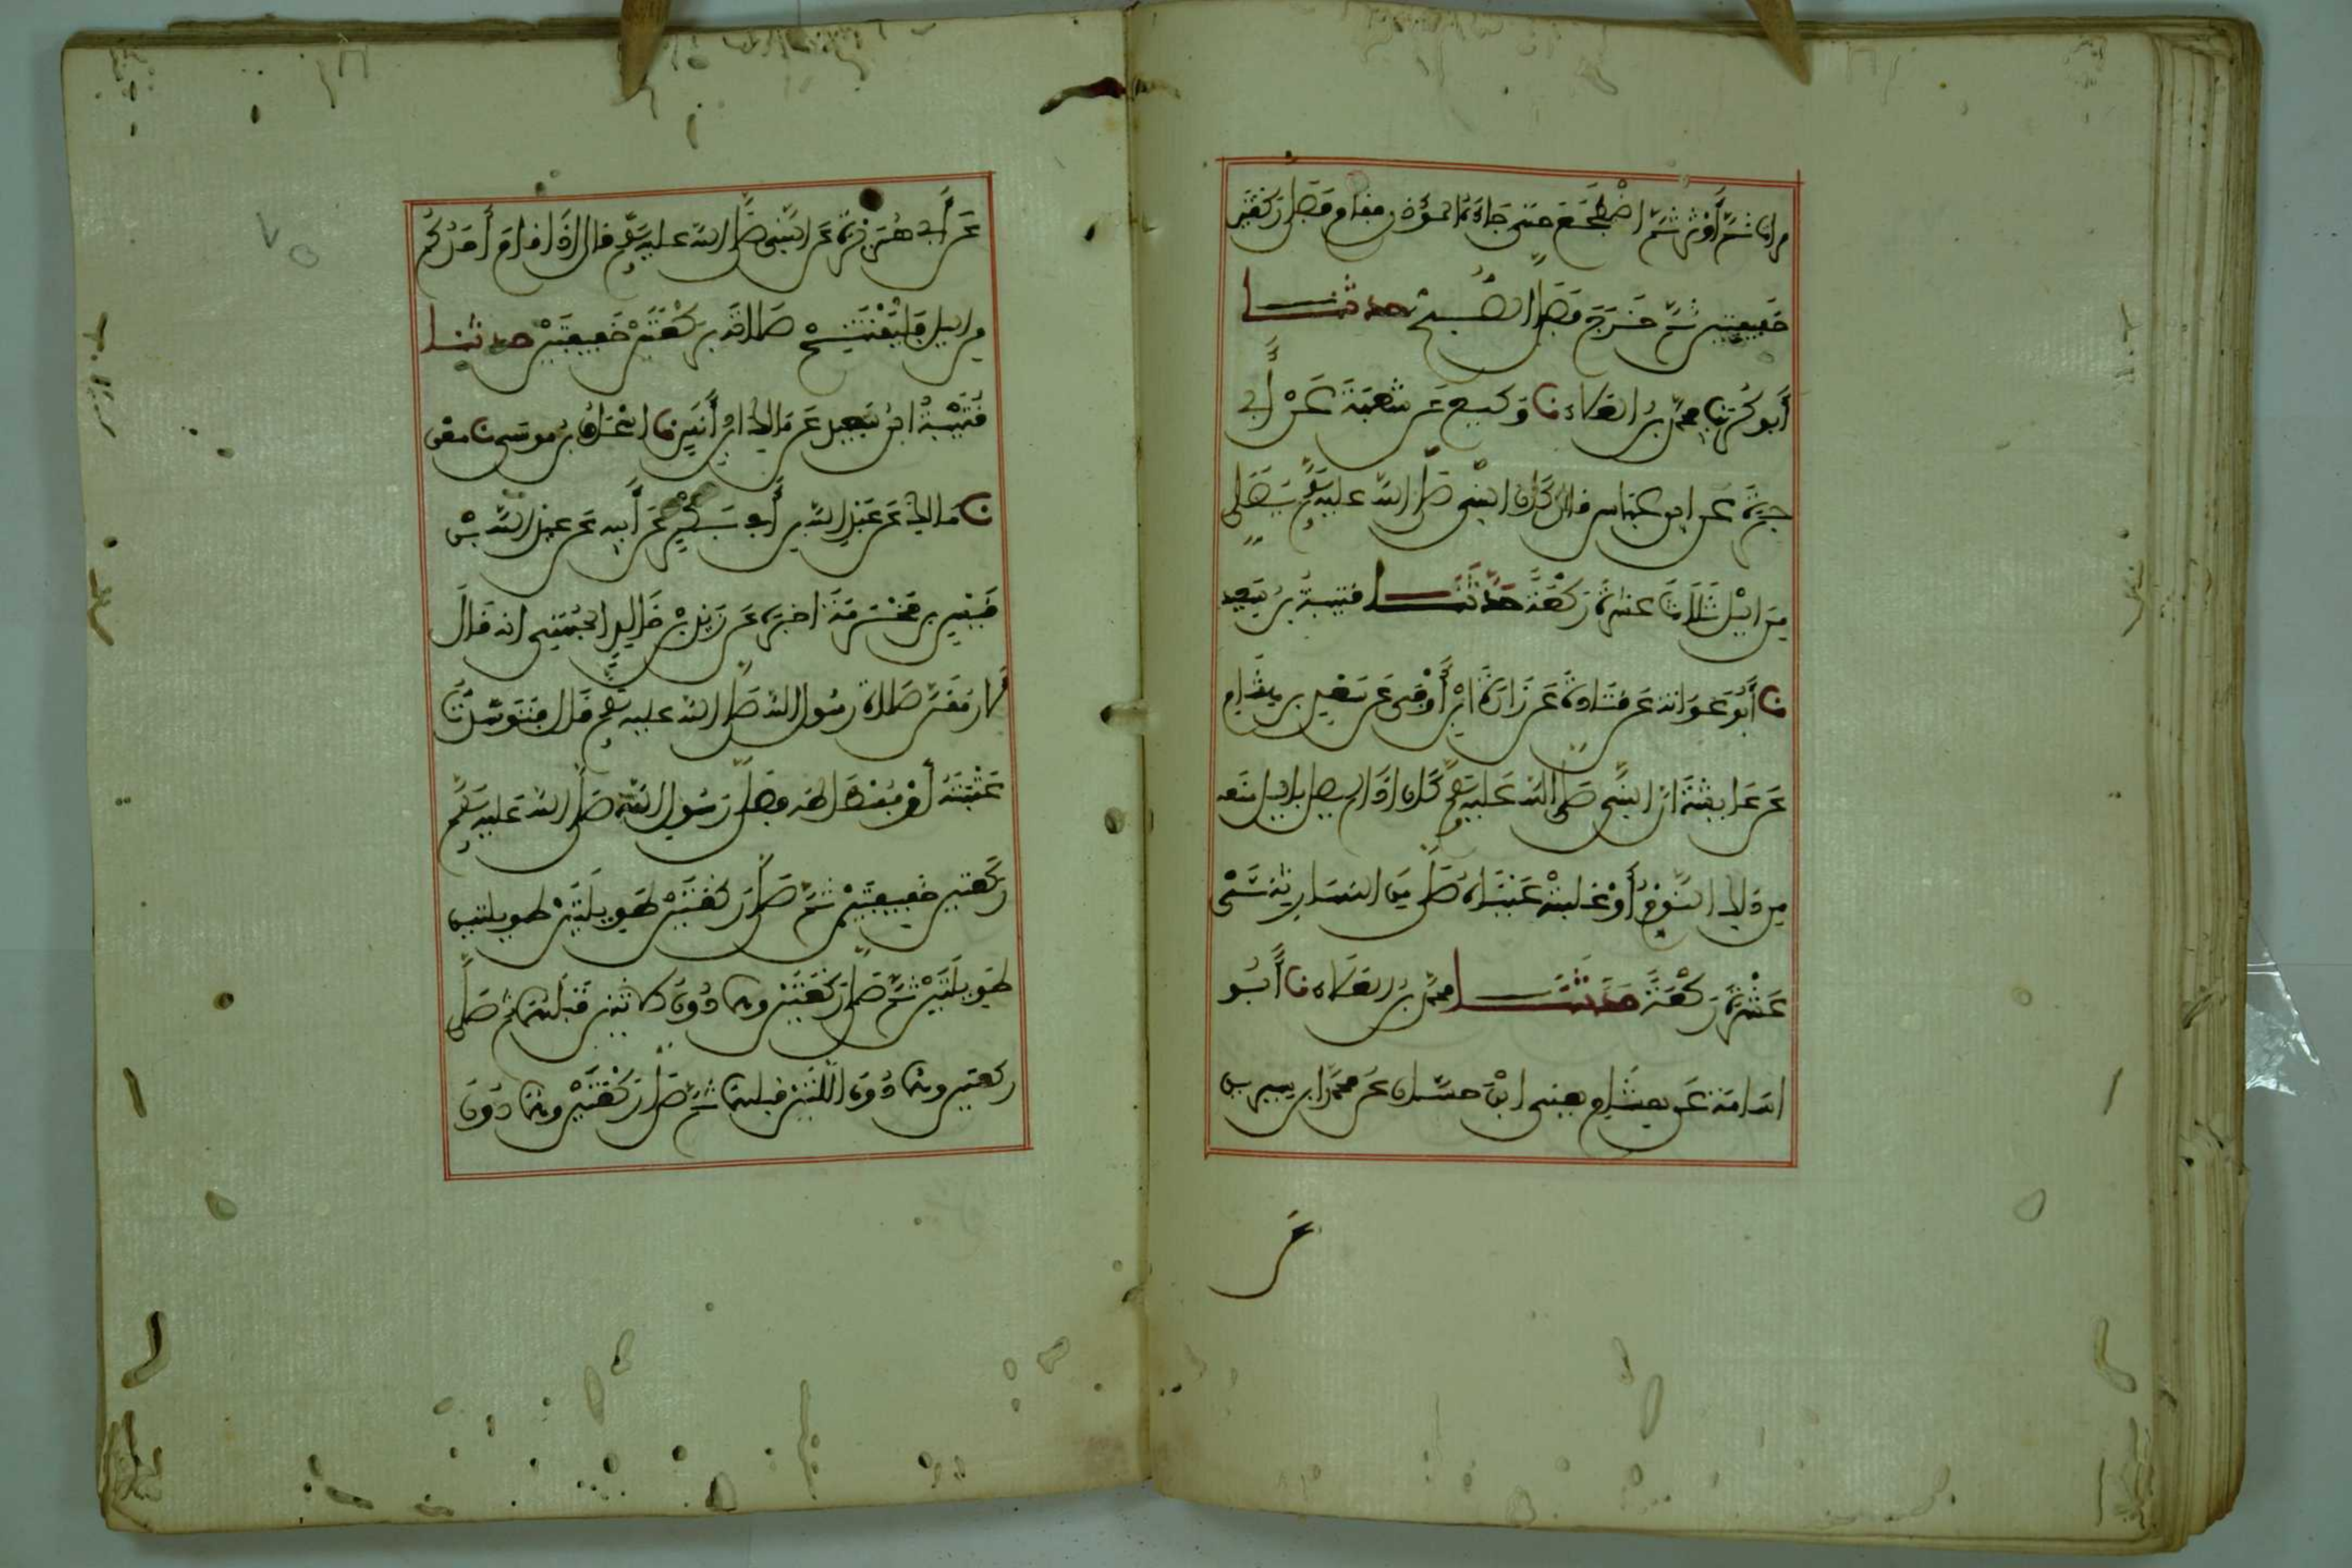 مرات ثم أوتر ثم اضطجع حتى جاءه المؤذن فقام فصلى ركعتين
خفيفتين ثم خرج فصلى الصبح حدثنا
أبو كريب محمد بن العلاء نا وكيع عن شعبة عن أبي
جمرة عن ابن عباس قال كان النبي صلى الله عليه وسلم يصلي
من الليل ثلاث عشرة ركعة حدثنا قتيبة بن سعيد
نا أبو عوانة عن قتادة عن زرارة ابن أوفى عن سعد بن هشام
عن عايشة ان النبي صلى الله عليه وسلم كان اذا لم يصل بالليل منعه
من ذلك النوم أو غلبته عيناه صلى من النهار ثنتي
عشرة ركعة حدثنا محمد بن العلاء نا أبو
اسامة عن هشام يعني ابن حسان عن محمد ابن سيرين
عن
عن أبي هريرة عن النبي صلى الله عليه وسلم قال اذا قام أحدكم
من الليل فليفتتح صلاته بركعتين خفيفتين حدثنا
قتيبة ابن سعيد عن مالك ابن أنس نا اسحاق بن موسى نا معن
نا مالك عن عبد الله بن أبي بكر عن أبيه عن عبد الله بن
قيس بن مخرمة اخبره عن زيد بن خالد الجهني انه قال
لارمقن صلاة رسول الله صلى الله عليه وسلم قال فتوسدت
عتبته أو فسطاطه فصلى رسول الله صلى الله عليه وسلم
ركعتين خفيفتين ثم صلى ركعتين طويلتين طويلتين
طويلتين ثم صلى ركعتين وهما دون اللتين قبلهما ثم صلى
ركعتين وهما دون اللتين قبلهما ثم صلى ركعتين وهما دون